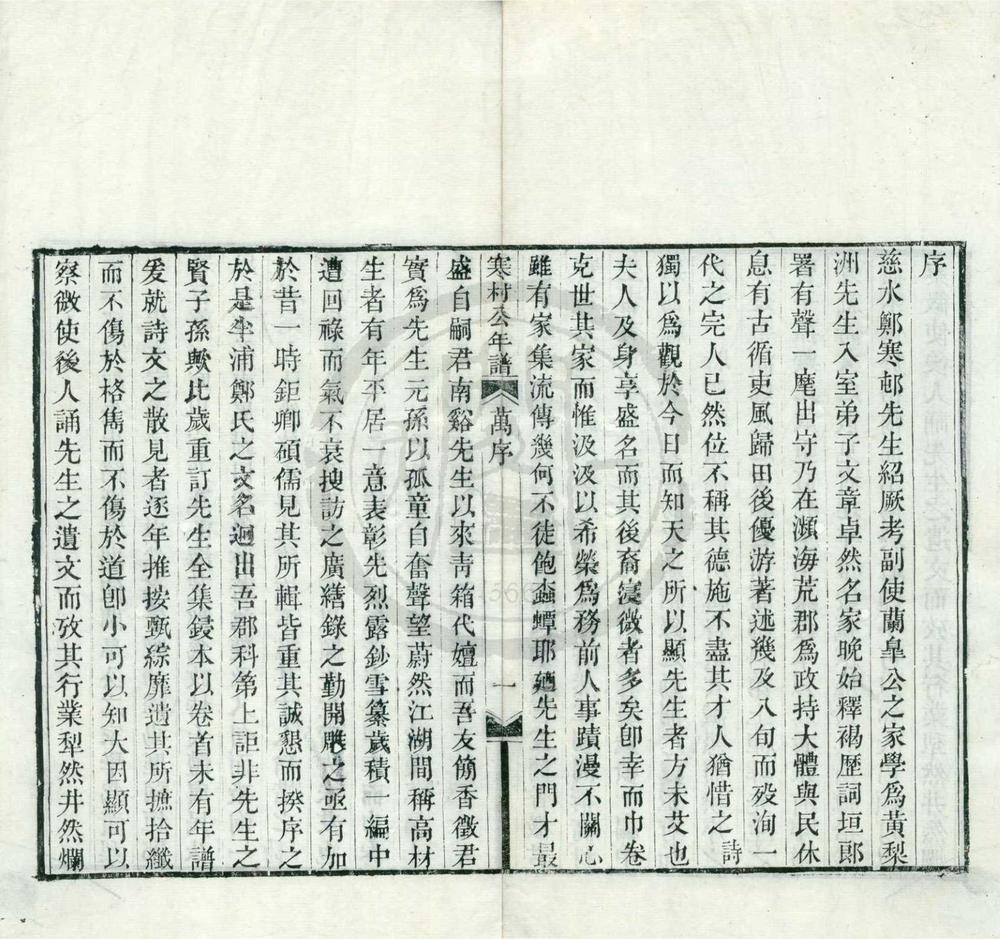 序
慈水鄭寒邨先生紹厥考副使蘭臯公之家學爲黃梨
洲先生入室弟子文章卓然名家晚始釋褐歷詞垣郎
署有聲一麾出守乃在瀕海荒郡爲政持大體與民休
息有古循吏風歸田後優游著述幾及八旬而歿洵一
代之完人已然位不稱其德施不盡其才人猶惜之詩
獨以爲觀於今日而知天之所以顯先生者方未艾也
夫人及身享盛名而其後裔寖微者多矣卽幸而巾卷
克世其家而惟汲汲以希榮爲務前人事蹟漫不關心
雖有家集流傳幾何不徒飽蟫耶廼先生之門才最
寒村公年譜 萬序 一
盛自嗣君南谿先生以來靑箱代嬗而吾友簡香徵君
實爲先生元孫以孤童自奮聲望蔚然江湖間稱高材
生者有年平居一意表彰先烈露鈔雪纂歲積一編中
遭回祿而氣不衰搜訪之廣繕錄之勤開雕之亟有加
於昔一時鉅卿碩儒見其所輯皆重其誠懇而揆序之
於是半浦鄭氏之文名迥出吾郡科第上詎非先生之
賢子孫歟比歲重訂先生全集鋟本以卷首未有年譜
爰就詩文之散見者逐年推按甄綜靡遺其所摭拾纖
而不傷於格雋而不傷於道卽小可以知大因顯可以
察微使後人誦先生之遺文而攷其行業犁然井然爛